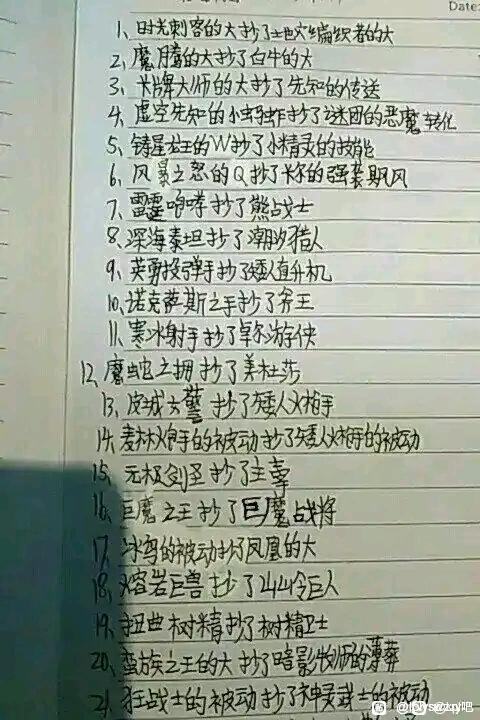 Date:
1、时光刺客的大抄了地穴编织者的大
2、魔腾的大抄了白牛的大
3、卡牌大师的大抄了先知的传送
4、虚空先知的小虫蚱抄了谜团的恶魔转化
5、铸星龙王的W抄了小精灵的技能
6、风暴之怒的Q抄了卡尔的强袭飓风
7、雷霆咆哮抄了熊战士
8、深海泰坦抄了潮汐猎人
9、英勇投弹手抄了矮人直升机
10、诺克萨斯之手抄了斧王
11、寒冰射手抄了卓尔游侠
12、魔蛇之拥抄了美杜莎
13、皮城女警抄了矮人火枪手
14、麦林炮手的被动抄了矮人火枪手的被动
15、无极剑圣抄了主宰
16、巨魔之王抄了巨魔战将
17、冰鸟的被动抄了凤凰的大
18、熔岩巨兽抄了山岭巨人
19、扭曲树精抄了树精卫士
20、蛮族之王的大抄了暗影牧师的薄葬
21、狂战士的被动抄了神灵武士的被动